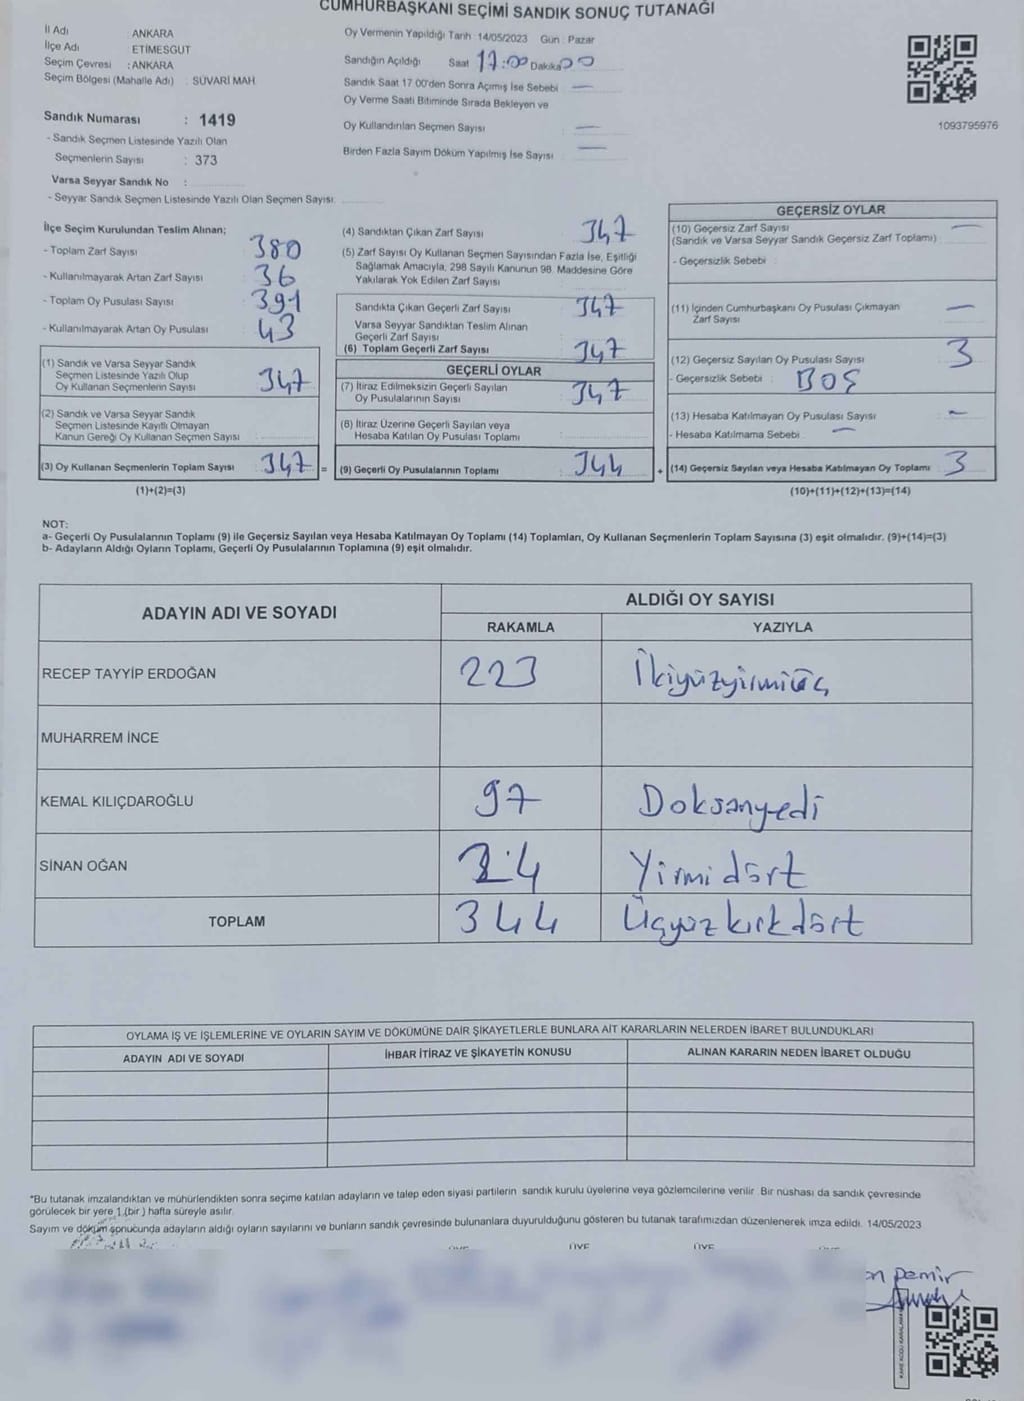 CUMHURBAŞKANI SEÇİMİ SANDIK SONUÇ TUTANAĞI
İl Adı : ANKARA
İlçe Adı : ETİMESGUT
Seçim Çevresi : ANKARA
Seçim Bölgesi (Mahalle Adı) : SÜVARİ MAH
Sandık Numarası : 1419
- Sandık Seçmen Listesinde Yazılı Olan
Seçmenlerin Sayısı : 373
Varsa Seyyar Sandık No :
- Seyyar Sandık Seçmen Listesinde Yazılı Olan Seçmen Sayısı
Oy Vermenin Yapıldığı Tarih : 14/05/2023 Gün : Pazar
Sandığın Açıldığı Saat 17:00 Dakika 00
Sandık Saat 17 00'den Sonra Açımış İse Sebebi —
Oy Verme Saati Bitiminde Sırada Bekleyen ve
Oy Kullandırılan Seçmen Sayısı —
Birden Fazla Sayım Döküm Yapılmış İse Sayısı —
1093795976
İlçe Seçim Kurulundan Teslim Alınan;
- Toplam Zarf Sayısı 380
- Kullanılmayarak Artan Zarf Sayısı 36
- Toplam Oy Pusulası Sayısı 391
- Kullanılmayarak Artan Oy Pusulası 43
(1) Sandık ve Varsa Seyyar Sandık
Seçmen Listesinde Yazılı Olup
Oy Kullanan Seçmenlerin Sayısı 347
(2) Sandık ve Varsa Seyyar Sandık
Seçmen Listesinde Kayıtlı Olmayan
Kanun Gereği Oy Kullanan Seçmen Sayısı
(3) Oy Kullanan Seçmenlerin Toplam Sayısı 347 =
(1)+(2)=(3)
(4) Sandıktan Çıkan Zarf Sayısı 347
(5) Zarf Sayısı Oy Kullanan Seçmen Sayısından Fazla İse, Eşitliği
Sağlamak Amacıyla, 298 Sayılı Kanunun 98. Maddesine Göre
Yakılarak Yok Edilen Zarf Sayısı
Sandıkta Çıkan Geçerli Zarf Sayısı 347
Varsa Seyyar Sandıktan Teslim Alınan
Geçerli Zarf Sayısı
(6) Toplam Geçerli Zarf Sayısı 347
GEÇERLİ OYLAR
(7) İtiraz Edilmeksizin Geçerli Sayılan
Oy Pusulalarının Sayısı 347
(8) İtiraz Üzerine Geçerli Sayılan veya
Hesaba Katılan Oy Pusulası Toplamı
(9) Geçerli Oy Pusulalarının Toplamı 344 +
GEÇERSİZ OYLAR
(10) Geçersiz Zarf Sayısı —
(Sandık ve Varsa Seyyar Sandık Geçersiz Zarf Toplamı)
- Geçersizlik Sebebi
(11) İçinden Cumhurbaşkanı Oy Pusulası Çıkmayan
Zarf Sayısı —
(12) Geçersiz Sayılan Oy Pusulası Sayısı 3
- Geçersizlik Sebebi : BOŞ
(13) Hesaba Katılmayan Oy Pusulası Sayısı —
- Hesaba Katılmama Sebebi —
(14) Geçersiz Sayılan veya Hesaba Katılmayan Oy Toplamı 3
(10)+(11)+(12)+(13)=(14)
NOT:
a- Geçerli Oy Pusulalarının Toplamı (9) ile Geçersiz Sayılan veya Hesaba Katılmayan Oy Toplamı (14) Toplamları, Oy Kullanan Seçmenlerin Toplam Sayısına (3) eşit olmalıdır. (9)+(14)=(3)
b- Adayların Aldığı Oyların Toplamı, Geçerli Oy Pusulalarının Toplamına (9) eşit olmalıdır.
ADAYIN ADI VE SOYADI ALDIĞI OY SAYISI
RAKAMLA YAZIYLA
RECEP TAYYİP ERDOĞAN 223 İkiyüzyirmiüç
MUHARREM İNCE
KEMAL KILIÇDAROĞLU 97 Doksanyedi
SİNAN OĞAN 24 Yirmidört
TOPLAM 344 Üçyüzkırkdört
OYLAMA İŞ VE İŞLEMLERİNE VE OYLARIN SAYIM VE DÖKÜMÜNE DAİR ŞİKAYETLERLE BUNLARA AİT KARARLARIN NELERDEN İBARET BULUNDUKLARI
ADAYIN ADI VE SOYADI İHBAR İTİRAZ VE ŞİKAYETİN KONUSU ALINAN KARARIN NEDEN İBARET OLDUĞU
*Bu tutanak imzalandıktan ve mühürlendikten sonra seçime katılan adayların ve talep eden siyasi partilerin sandık kurulu üyelerine veya gözlemcilerine verilir. Bir nüshası da sandık çevresinde
görülecek bir yere 1 (bir) hafta süreyle asılır.
Sayım ve döküm sonucunda adayların aldığı oyların sayılarını ve bunların sandık çevresinde bulunanlara duyurulduğunu gösteren bu tutanak tarafımızdan düzenlenerek imza edildi. 14/05/2023
ÜYE ÜYE
Demir